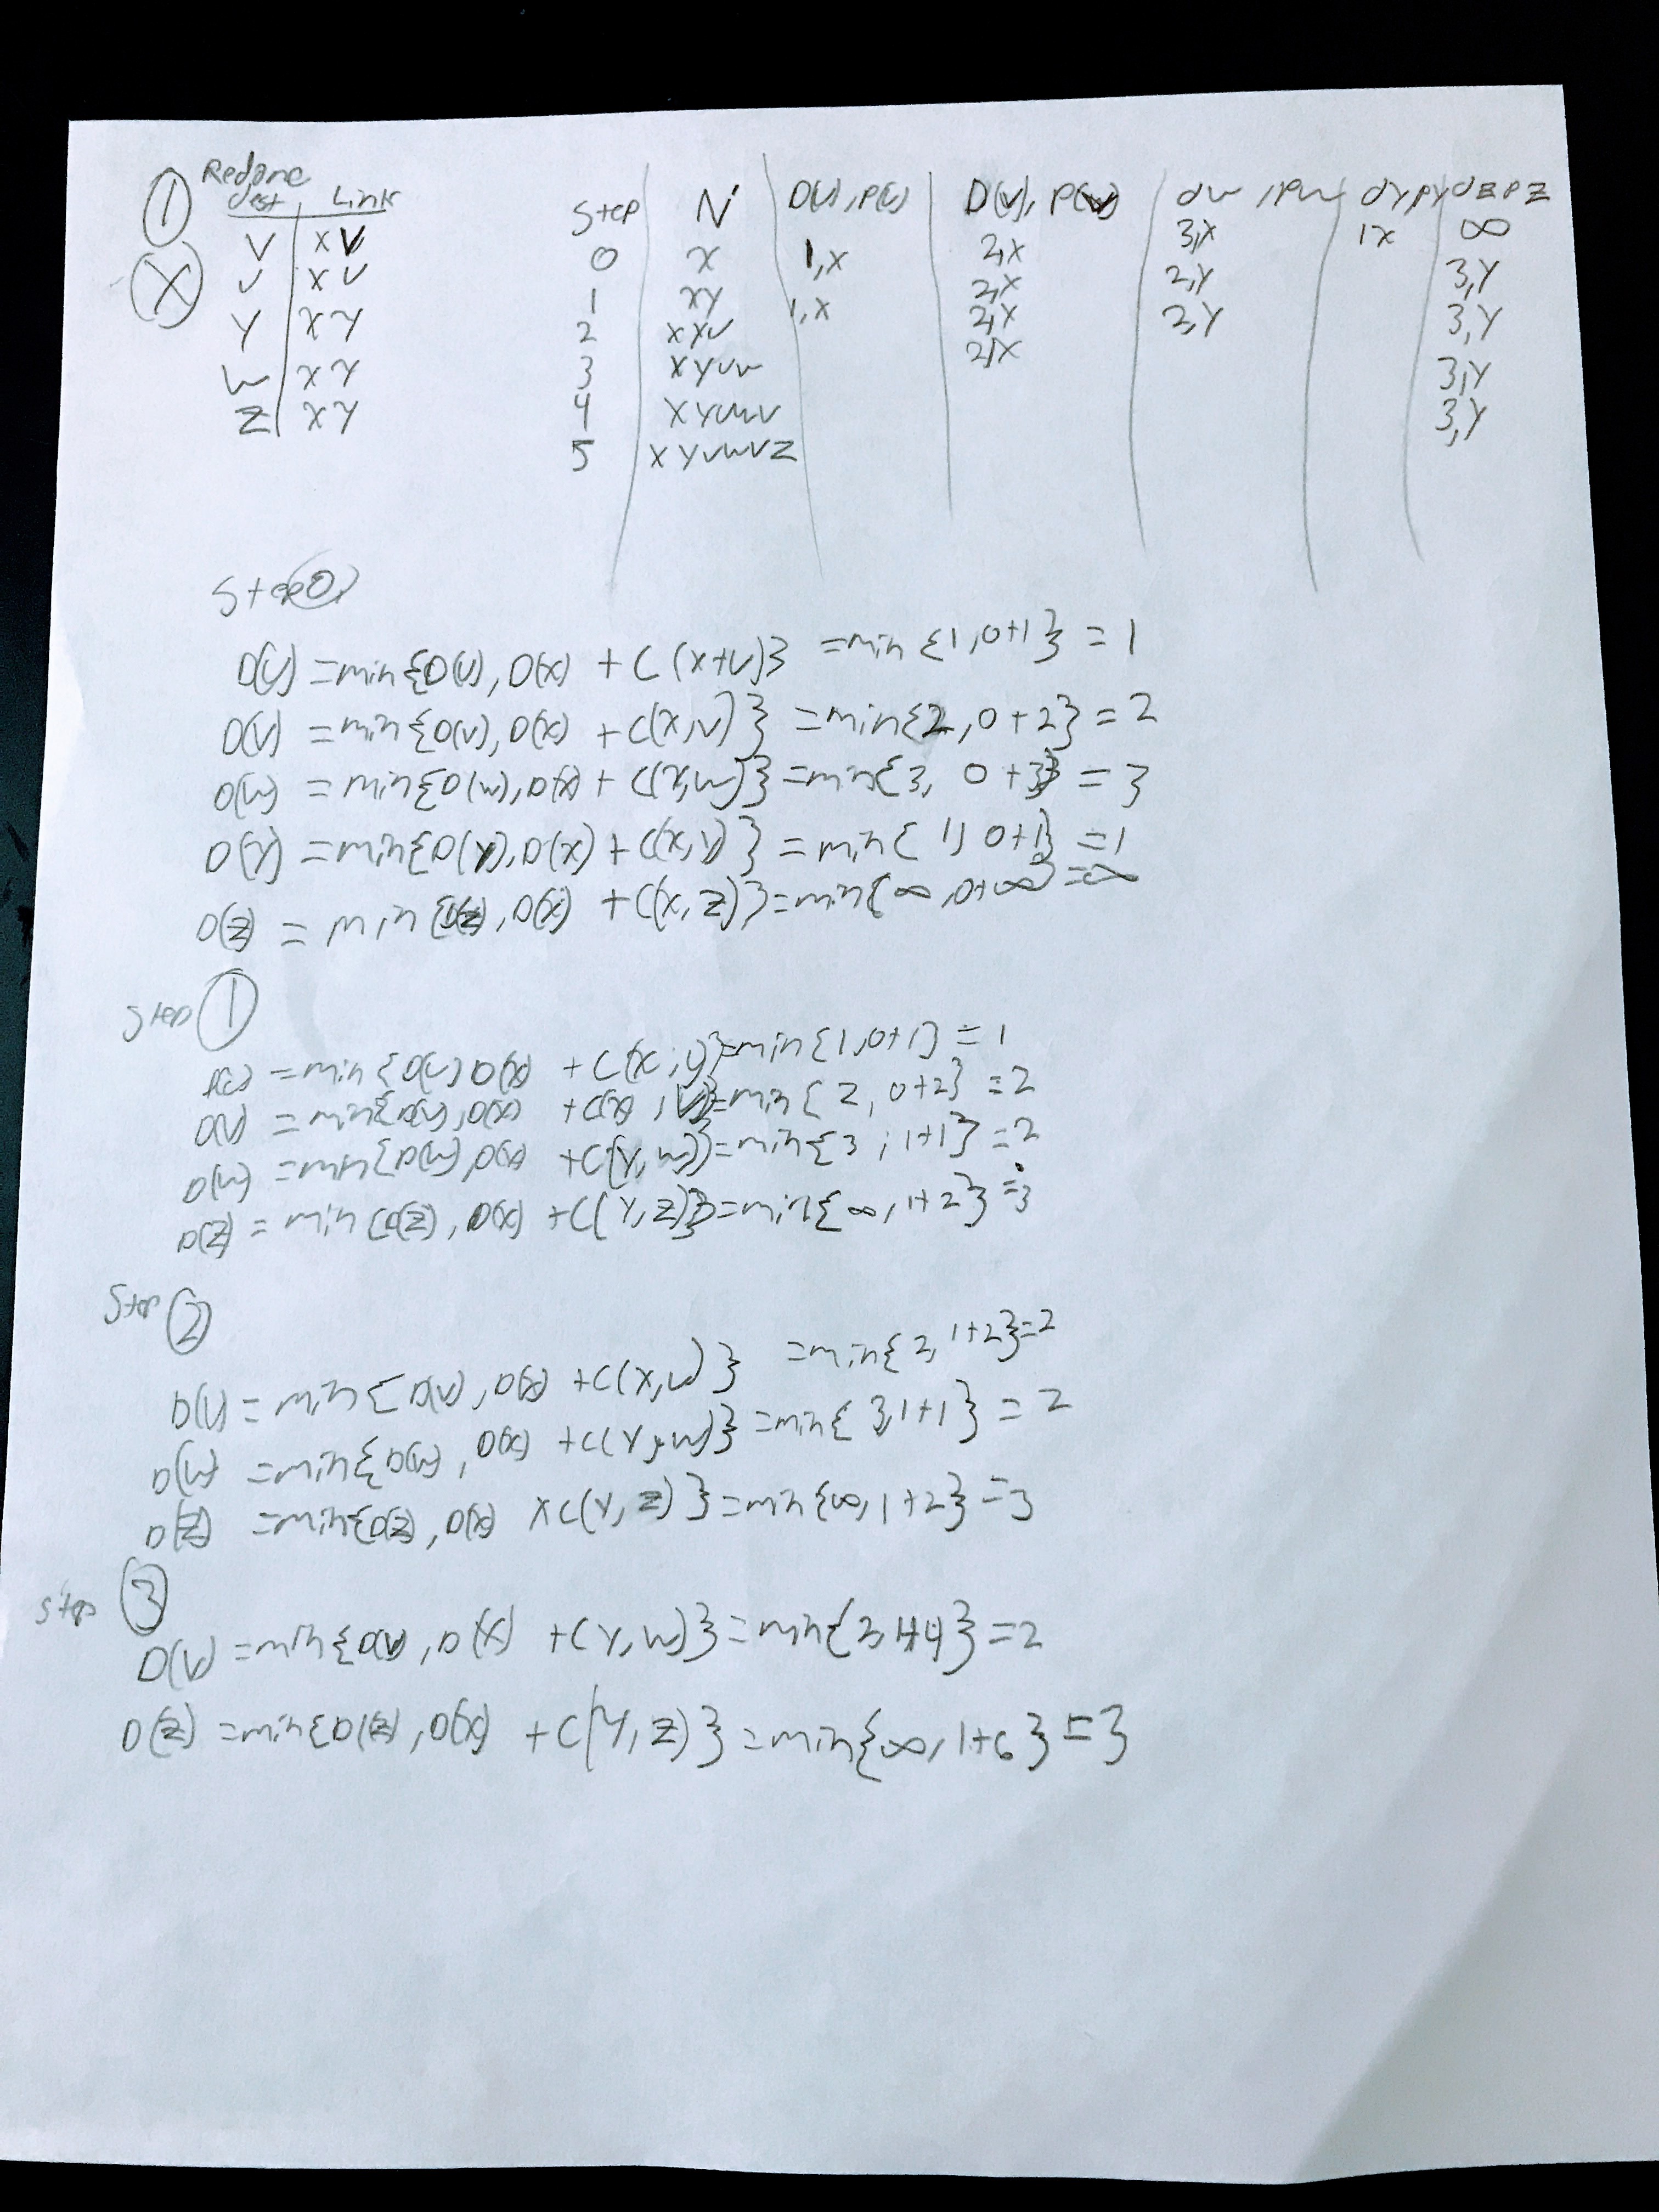 ① Redone
dest Link
V XV
U XU
Y XY
W XY
Z XY
Ⓧ
Step N' D(U),P(U) D(V), P(V) dw ,pw dy py dz pz
0 X 1,X 2,X 3,X 1X ∞
1 XY 1,X 2,X 2,Y 3,Y
2 XYU 2,X 2,Y 3,Y
3 XYUW 2,X 3,Y
4 XYUWV 3,Y
5 XYUWVZ
Step 0
D(U) = min{D(U), D(X) + C(X+U)} = min {1, 0+1} = 1
D(V) = min{D(V), D(X) + C(X,V)} = min{2, 0+2} = 2
D(W) = min{D(W), D(X) + C(X,W)} = min{3, 0+3} = 3
D(Y) = min{D(Y), D(X) + C(X,Y)} = min{1, 0+1} = 1
D(Z) = min{D(Z), D(X) + C(X,Z)} = min{∞, 0+∞} = ∞
Step ①
= min{D(U) D(X) + C(X,U} = min{1,0+1} = 1
D(V) = min{D(V), D(X) + C(X,V)} = min{2, 0+2} = 2
D(W) = min{D(W), D(X) + C(Y,W)} = min{3, 1+1} = 2
D(Z) = min(D(Z), D(X) + C(Y,Z)} = min{∞, 1+2} = 3
Step ②
D(V) = min{D(V), D(X) + C(X,V)} = min{2, 1+2} = 2
D(W) = min{D(W), D(X) + C(Y,W)} = min{3,1+1} = 2
D(Z) = min{D(Z), D(X) x C(Y,Z)} = min{∞, 1+2} = 3
Step ③
D(V) = min{D(V), D(X) + C Y,W)} = min{2,1+4} = 2
D(Z) = min{D(Z), D(X) + C(Y,Z)} = min{∞, 1+6} = 3